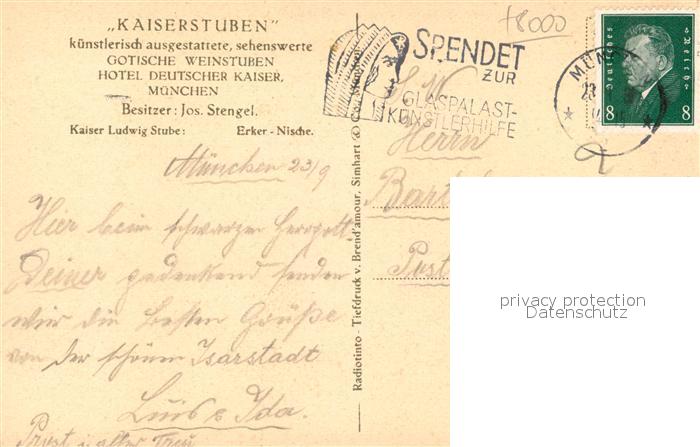 „KAISERSTUBEN"
künstlerisch ausgestattete, sehenswerte
GOTISCHE WEINSTUBEN
HOTEL DEUTSCHER KAISER,
MÜNCHEN
Besitzer: Jos. Stengel.
Kaiser Ludwig Stube: Erker-Nische.
München 23/9
Hier beim schwarzen Herrgott
Deiner gedenkend senden
wir die besten Grüße
von der schönen Isarstadt
Luis & Ida.
Prost i. alter Treu
Radiotinto - Tiefdruck v. Brend'amour, Simhart & Co., München
+8000
SPENDET
ZUR
GLASPALAST-
KÜNSTLERHILFE
MÜN
23
Deutsches Reich
8 8
S. W.
Herrn
Bart
Post
privacy protection
Datenschutz